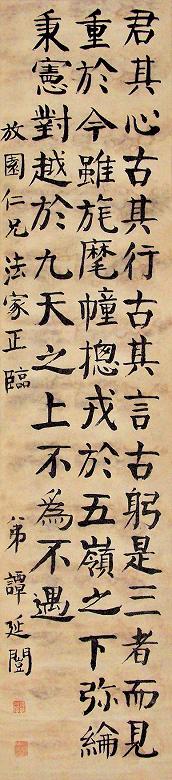 君其心古其行古其言古躬是三者而見
重於今雖旄麾幢摠戎於五嶺之下弥綸
秉憲對越於九天之上不為不遇
放園仁兄法家正臨
弟譚延闓